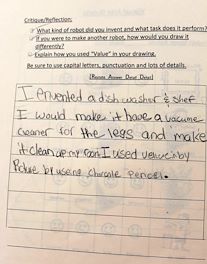 Critique/Reflection:
What kind of robot did you invent and what task does it perform?
If you were to make another robot, how would you draw it
differently?
Explain how you used "Value" in your drawing.
Be sure to use capital letters, punctuation and lots of details.
I envented a dish washer & shef
I would make it have a vacume
cleaner for the legs and make
it clean up my room I used in by
Picture by useing pencel.